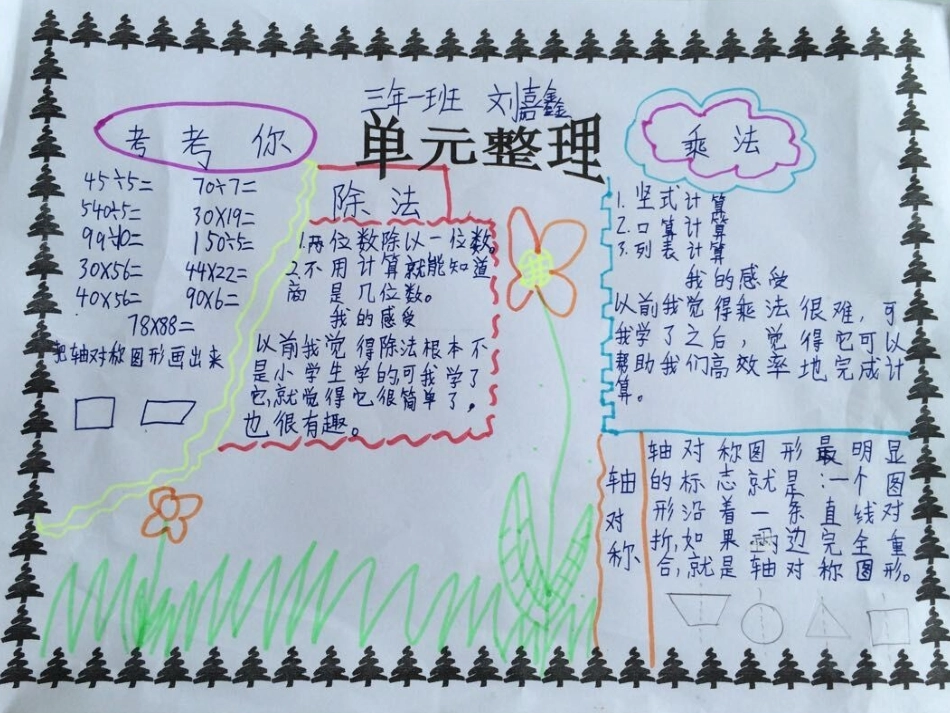 三年一班 刘嘉鑫
单元整理
考考你
45÷5= 70÷7=
540÷5= 30×19=
99÷10= 150÷5=
30×56= 44×22=
40×56= 90×6=
78×88=
把轴对称图形画出来
除法
1.两位数除以一位数。
2.不用计算就能知道
商是几位数。
我的感受
以前我觉得除法根本不
是小学生学的,可我学了
它,就觉得它很简单了,
也很有趣。
乘法
1.竖式计算
2.口算计算
3.列表计算
我的感受
以前我觉得乘法很难,可
我学了之后,觉得它可以
帮助我们高效率地完成计
算。
轴对称
轴对称图形最明显
的标志就是:一个图
形沿着一条直线对
折,如果两边完全重
合,就是轴对称图形。